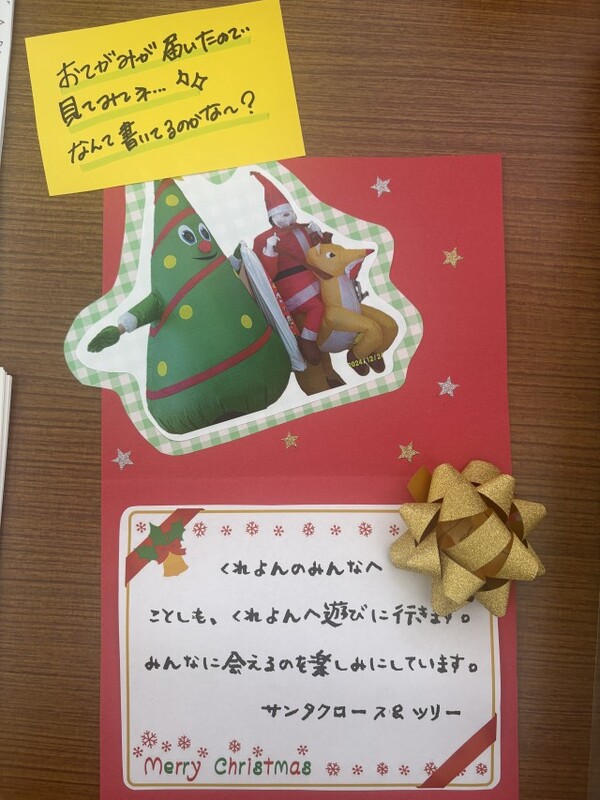 おてがみが届いたので
見てみてネ…
なんて書いてるのかな〜？
2024/12/2
くれよんのみんなへ
ことしも、くれよんへ遊びに行きます。
みんなに会えるのを楽しみにしています。
サンタクロース＆ツリー
Merry Christmas